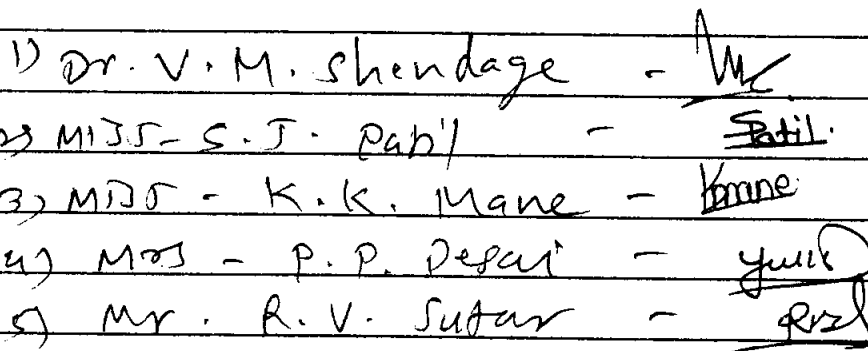 1) Dr. V. M. Shendage -
2) Miss - S. J. Patil - Spatil.
3) Miss - K. K. Mane - Kmane
4) Mrs - P. P. Desai -
5) Mr. R. V. Sutar -